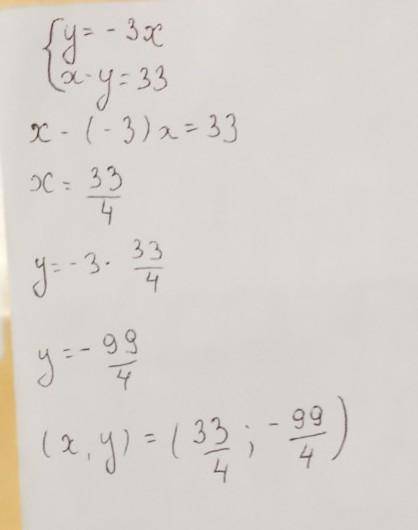 {y = - 3x
x - y = 33
x - (- 3)x = 33
x = 33/4
y = - 3 · 33/4
y = - 99/4
(x, y) = (33/4 ; - 99/4)